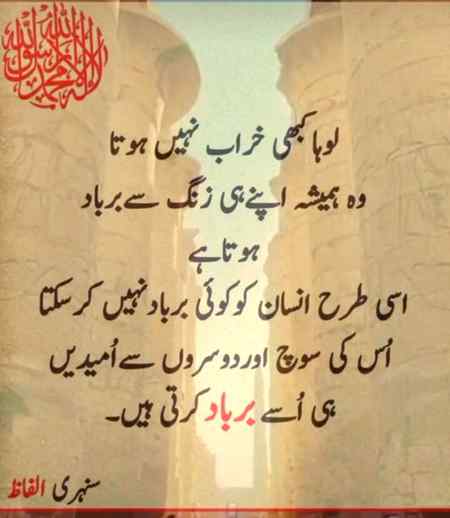 لا إله إلا الله محمد رسول الله
لوہا کبھی خراب نہیں ہوتا
وہ ہمیشہ اپنے ہی زنگ سے برباد
ہوتا ہے
اسی طرح انسان کو کوئی برباد نہیں کر سکتا
اُس کی سوچ اور دوسروں سے اُمیدیں
ہی اُسے برباد کرتی ہیں۔
سنہری الفاظ